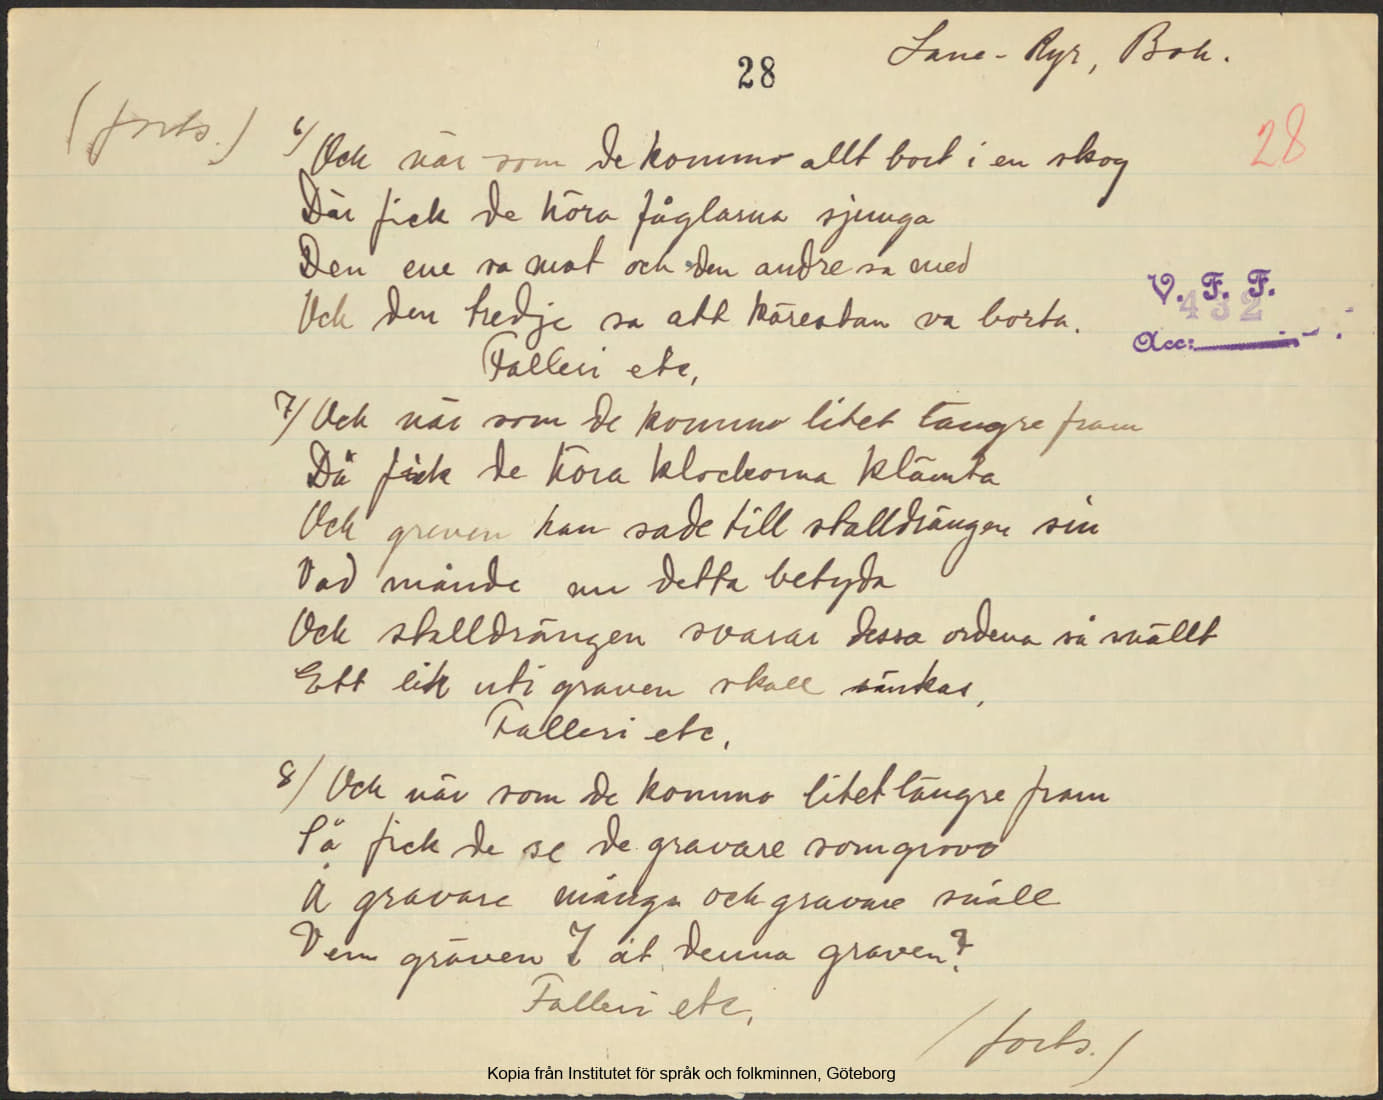 Lane-Ryr, Boh.
28
28
(forts.)
6/ Och när som de kommo allt bort i en skog
Där fick de höra fåglarna sjunga
Den ene sa mat och den andre sa med
Och den tredje sa att kärestan va borta.
Falleri etc,
V. F. F.
432
Acc:
7/ Och när som de kommo litet längre fram
Då fick de höra klockorna klämta
Och greven han sade till stalldrängen sin
Vad månde nu detta betyda
Och stalldrängen svarar dessa ordena så snällt
Ett lik uti graven skall sänkas,
Falleri etc,
8/ Och när som de kommo litet längre fram
Så fick de se de gravare som grovo
Å gravare många och gravare snäll
Vem gräven I åt denna graven?
Falleri etc,
(forts.)
Kopia från Institutet för språk och folkminnen, Göteborg